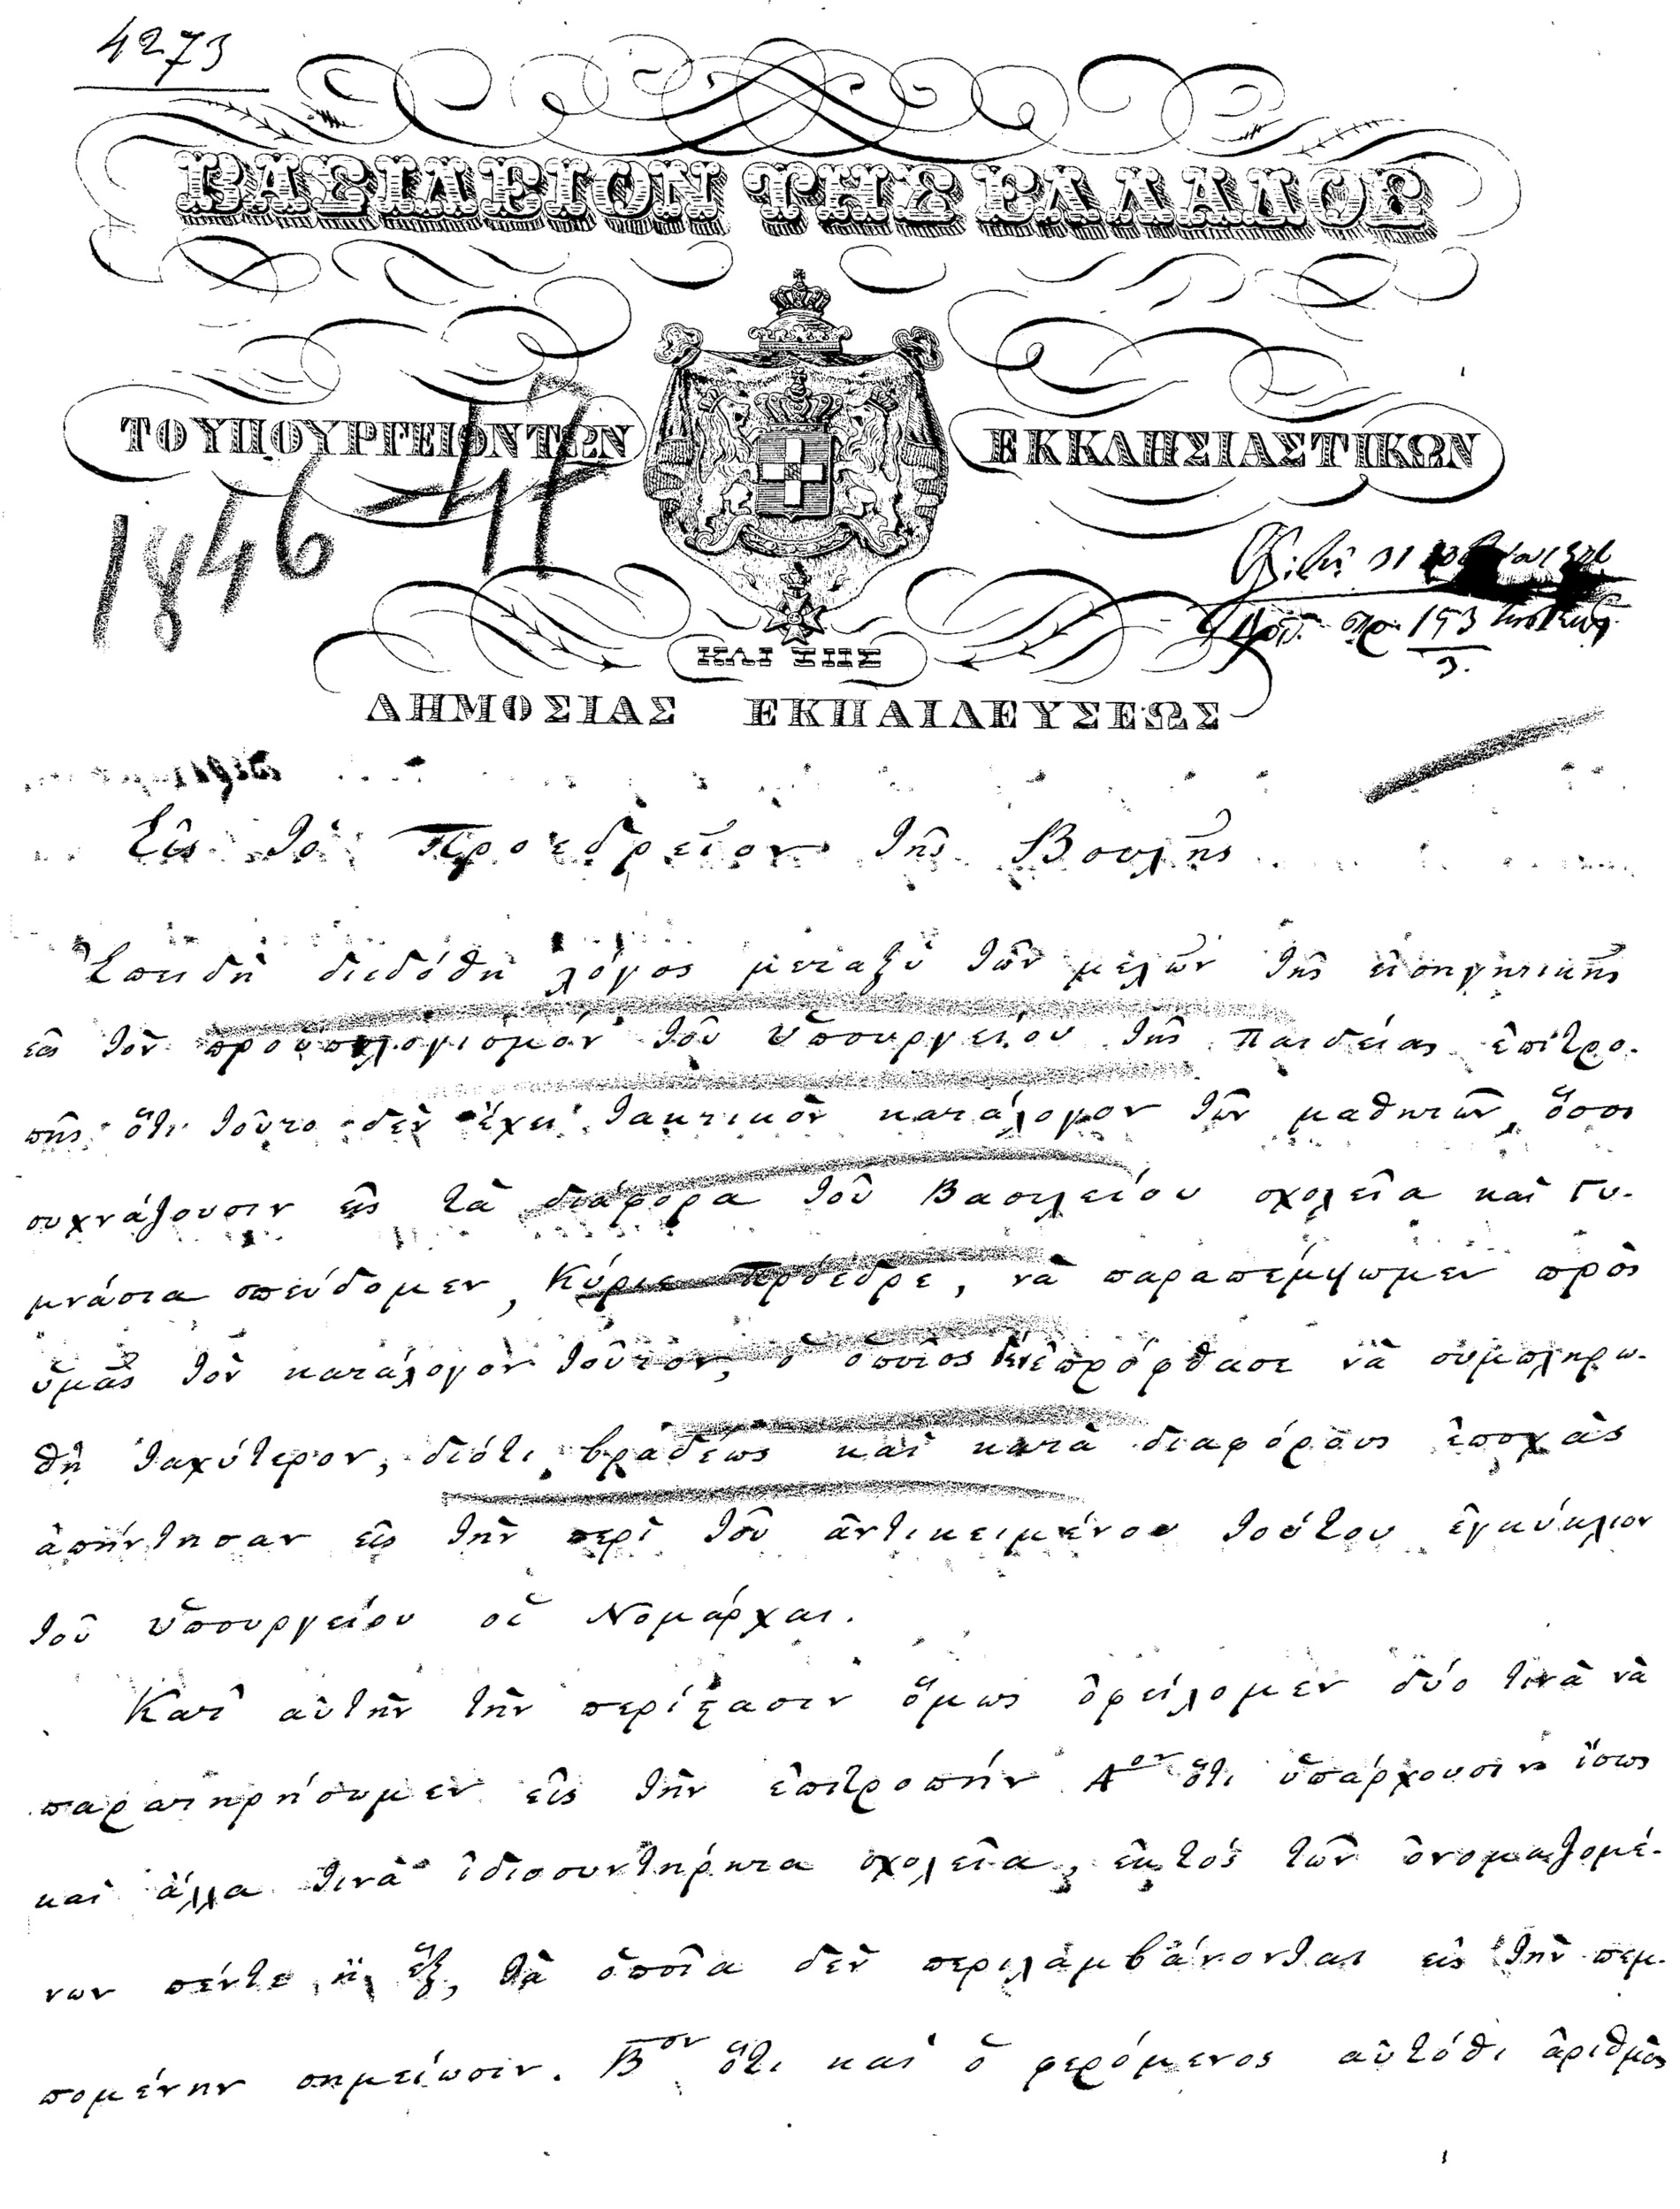 4273
ΒΑΣΙΛΕΙΟΝ ΤΗΣ ΕΛΛΑΔΟΣ
ΤΟΥ ΥΠΟΥΡΓΕΙΟΝ ΤΩΝ ΕΚΚΛΗΣΙΑΣΤΙΚΩΝ
1846
31
193
3.
ΚΑΙ ΤΗΣ
ΔΗΜΟΣΙΑΣ ΕΚΠΑΙΔΕΥΣΕΩΣ
Εἰς τὸ Προεδρεῖον τῆς Βουλῆς
Ἐπειδὴ διεδόθη λόγος μεταξὺ τῶν μελῶν τῆς εἰσηγητικῆς
εἰς τὸν προϋπολογισμὸν τοῦ Ὑπουργείου τῆς Παιδείας ἐπιτρο-
πῆς ὅτι τοῦτο δὲν ἔχει τακτικὸν κατάλογον τῶν μαθητῶν, ὅσοι
συχνάζουσιν εἰς τὰ διάφορα τοῦ Βασιλείου σχολεῖα καὶ Γυ-
μνάσια σπεύδομεν, Κύριε Πρόεδρε, νὰ παραπέμψωμεν πρὸς
ὑμᾶς τὸν κατάλογον τοῦτον, ὁ ὁποῖος δὲν ἐπρόφθασε νὰ συμπληρω-
θῇ ταχύτερον, διότι βραδέως καὶ κατὰ διαφόρους ἐποχὰς
ἀπήντησαν εἰς τὴν περὶ τοῦ ἀντικειμένου τούτου ἐγκύκλιον
τοῦ Ὑπουργείου οἱ Νομάρχαι.
Κατ' αὐτὴν τὴν περίστασιν ὅμως ὀφείλομεν δύο τινὰ νὰ
παρατηρήσωμεν εἰς τὴν ἐπιτροπήν Α<sup>ον</sup> ὅτι ὑπάρχουσιν ἴσως
καὶ ἄλλα τινὰ ἰδιοσυντήρητα σχολεῖα, ἐκτὸς τῶν ὀνομαζομέ-
νων πέντε ἢ ἕξ, τὰ ὁποῖα δὲν περιλαμβάνονται εἰς τὴν πεμ-
πομένην σημείωσιν. Β<sup>ον</sup> ὅτι καὶ ὁ φερόμενος αὐτόθι ἀριθμὸς